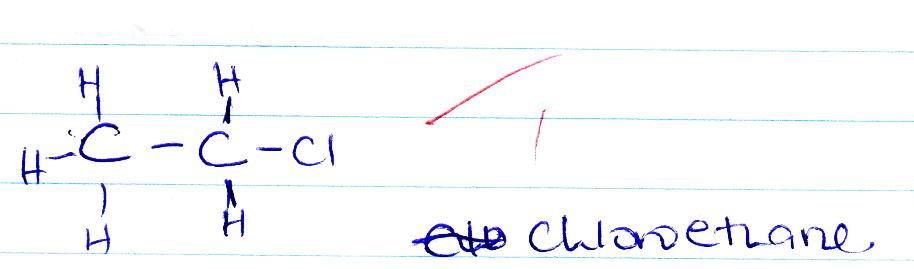 H H
H-C-C-Cl
H H
chloroethane